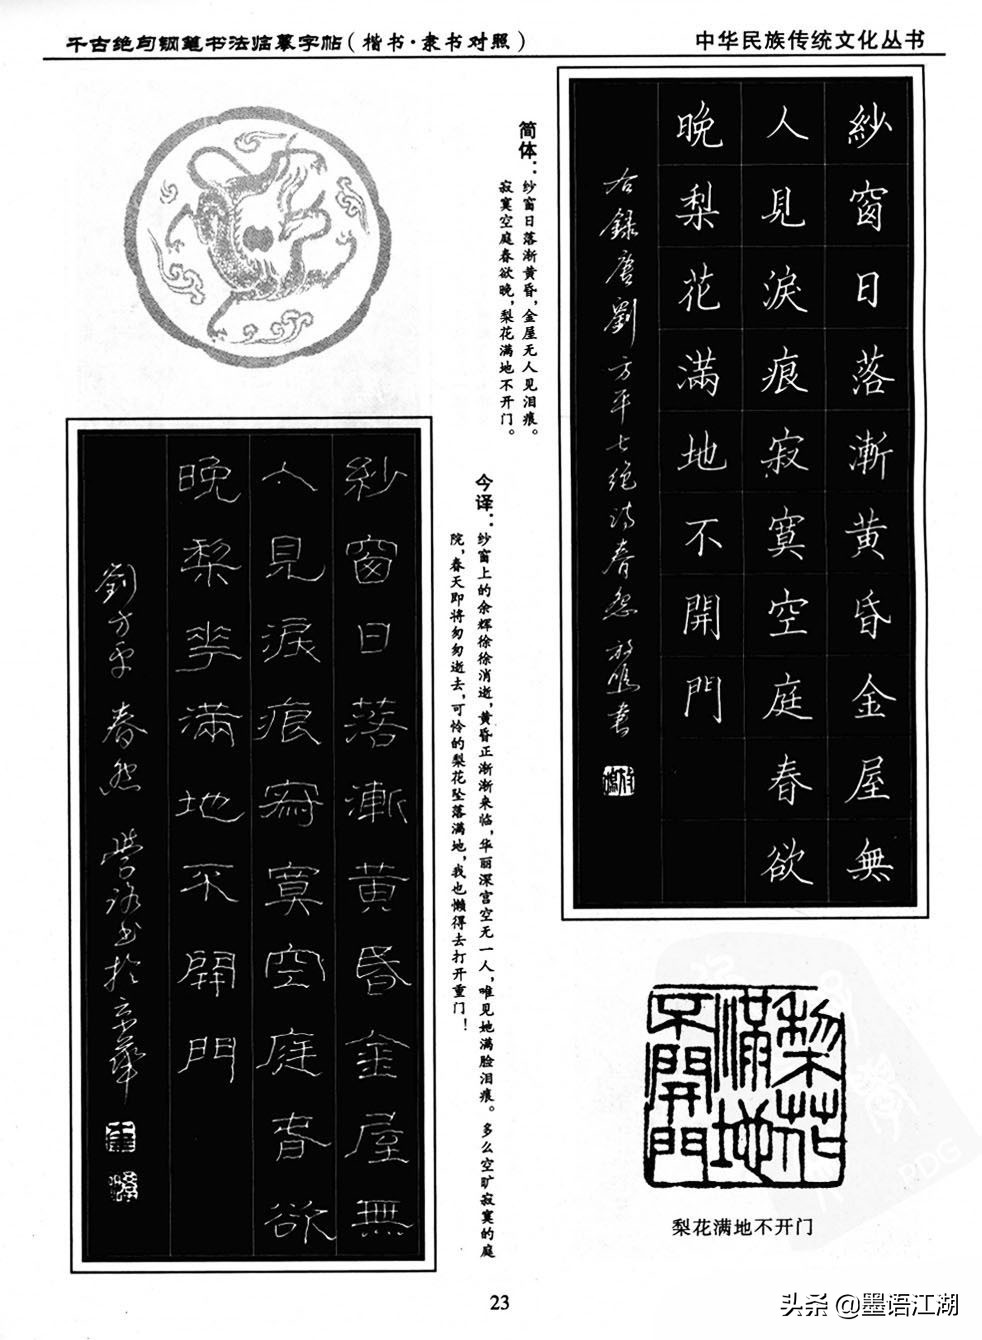 千古绝句钢笔书法临摹字帖(楷书·隶书对照)
中华民族传统文化丛书
紗窗日落漸黃昏金屋無
人見淚痕寂寞空庭春欲
晚梨花滿地不開門
右錄唐劉方平七绝诗春怨
简体：纱窗日落渐黄昏，金屋无人见泪痕。
寂寞空庭春欲晚，梨花满地不开门。
紗窗日落漸黃昏金屋無
人見淚痕寂寞空庭春欲
晚梨花滿地不開門
劉方平春怨
今译：纱窗上的余辉徐徐消逝，黄昏正渐渐来临，华丽深宫空无一人，唯见她满脸泪痕。多么空旷寂寞的庭
院，春天即将匆匆逝去，可怜的梨花坠落满地，我也懒得去打开重门！
梨花
满地
不開門
梨花满地不开门
23
头条 @墨语江湖
PDG